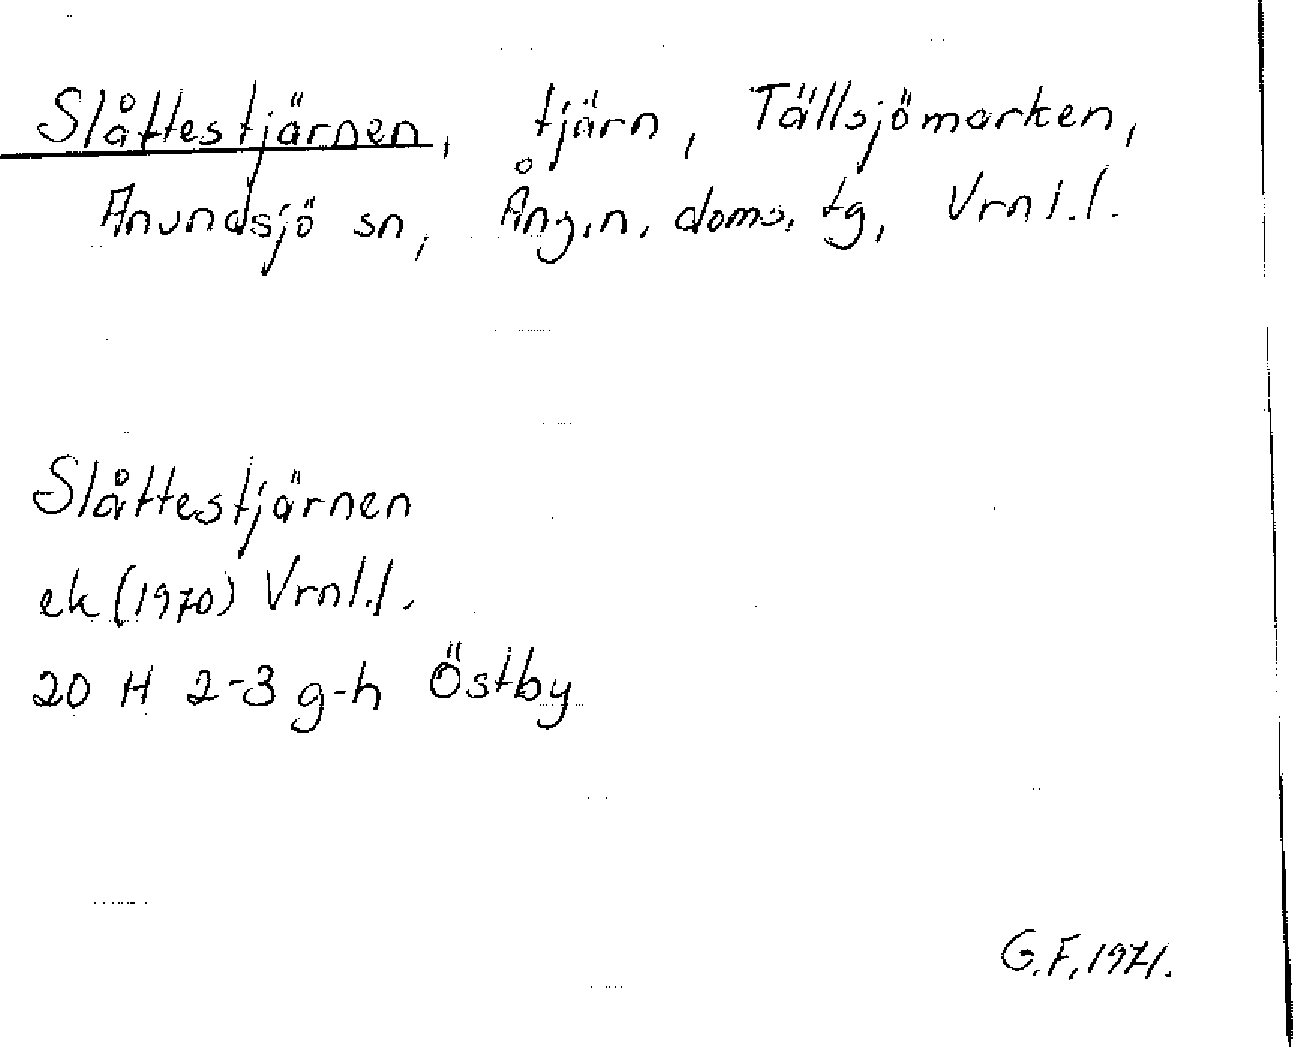 Slåttestjärnen, tjärn, Tällsjömarken,
Anundsjö sn, Ång.n. doms. tg, Vrnl.l.
Slåttestjärnen
ek (1970) Vrnl.l.
20 H 2-3 g-h Östby
G.F. 1971.